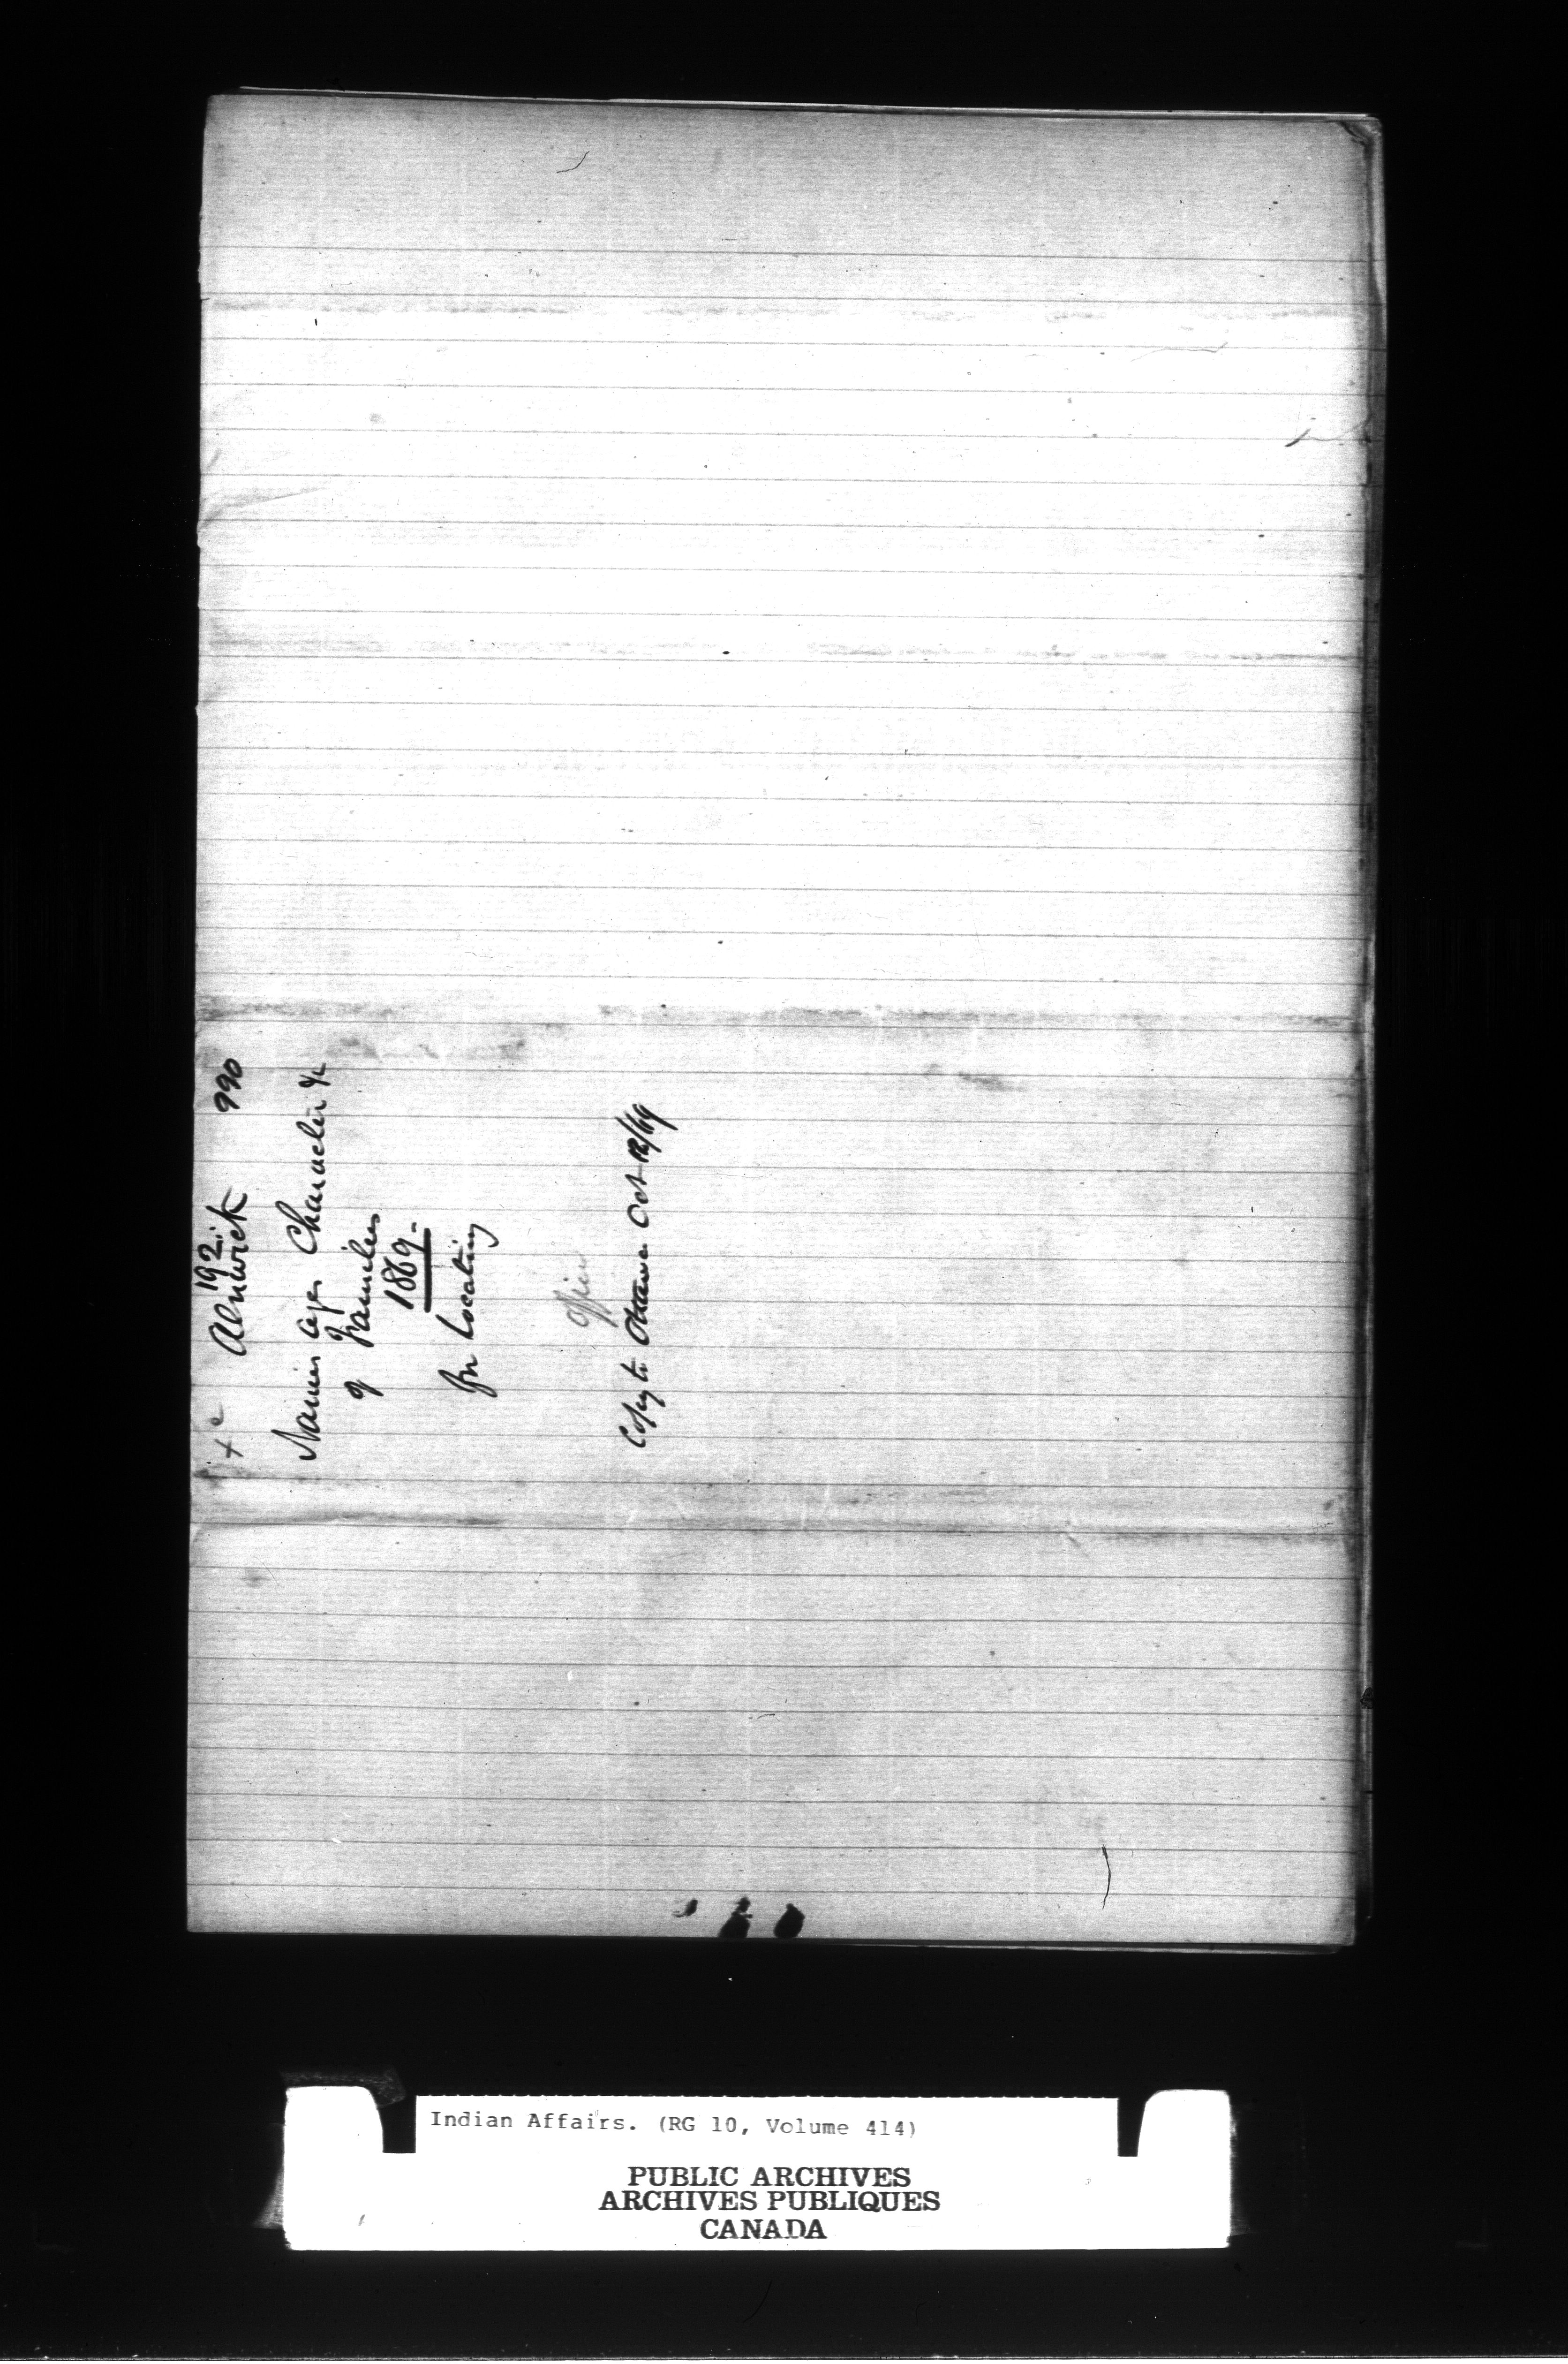 192.
Alnwick 990
Names ages Character &c
of Families
1869.-
for Locating
Office
Copy to Ottawa Oct 12/69
Indian Affairs. (RG 10, Volume 414)
PUBLIC ARCHIVES
ARCHIVES PUBLIQUES
CANADA